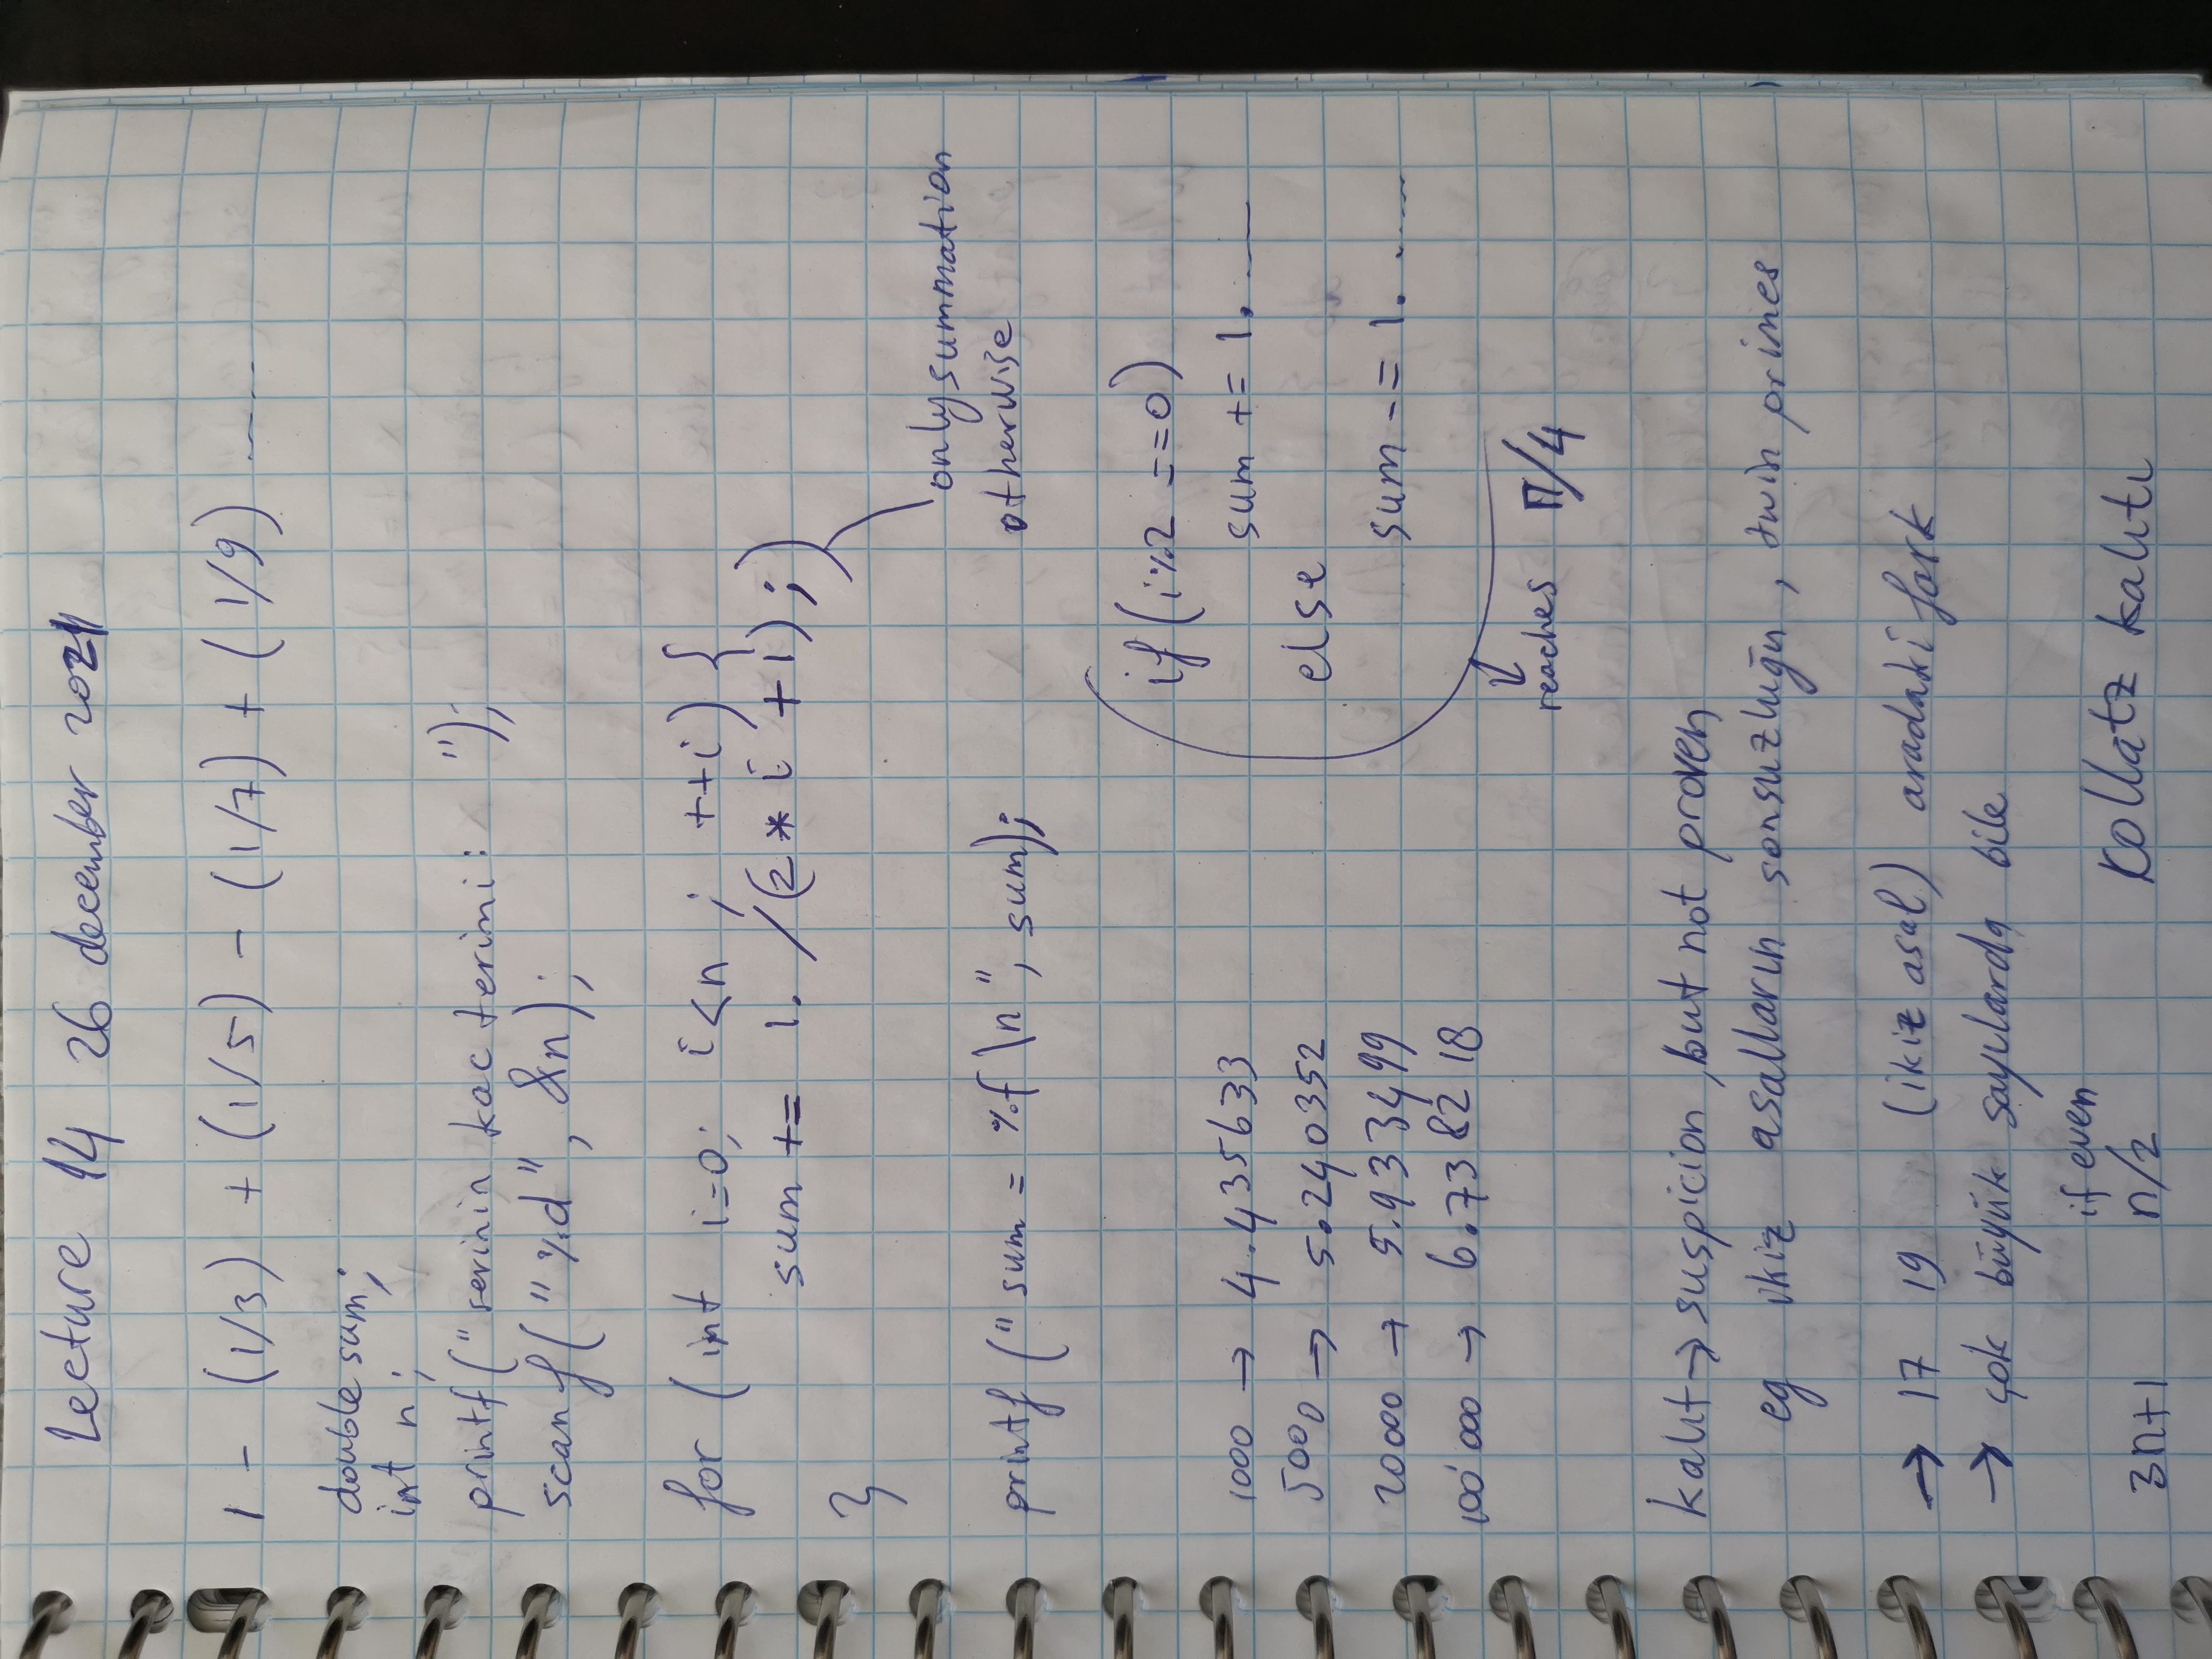 Lecture 14 26 december 2021
1 - (1/3) + (1/5) - (1/7) + (1/9) .....
double sum;
int n;
printf("serinin kac terimi: ");
scanf("%d", &n);
for (int i=0; i<n ; ++i) {
sum += 1. /(2 * i +1);
}
only summation
otherwise
printf ("sum = %f \n", sum);
if (i%2 ==0)
sum += 1. ....
else
sum -= 1. .....
reaches π/4
1000 → 4.435633
5000 → 5.240352
20000 → 5.933499
100'000 → 6.738218
kalıt → suspicion, but not proven
eg ikiz asalların sonsuzluğu, twin primes
→ 17 19 (ikiz asal) aradaki fark
→ çok büyük sayılarda bile
if even
3n+1 n/2 Kollatz kalıtı